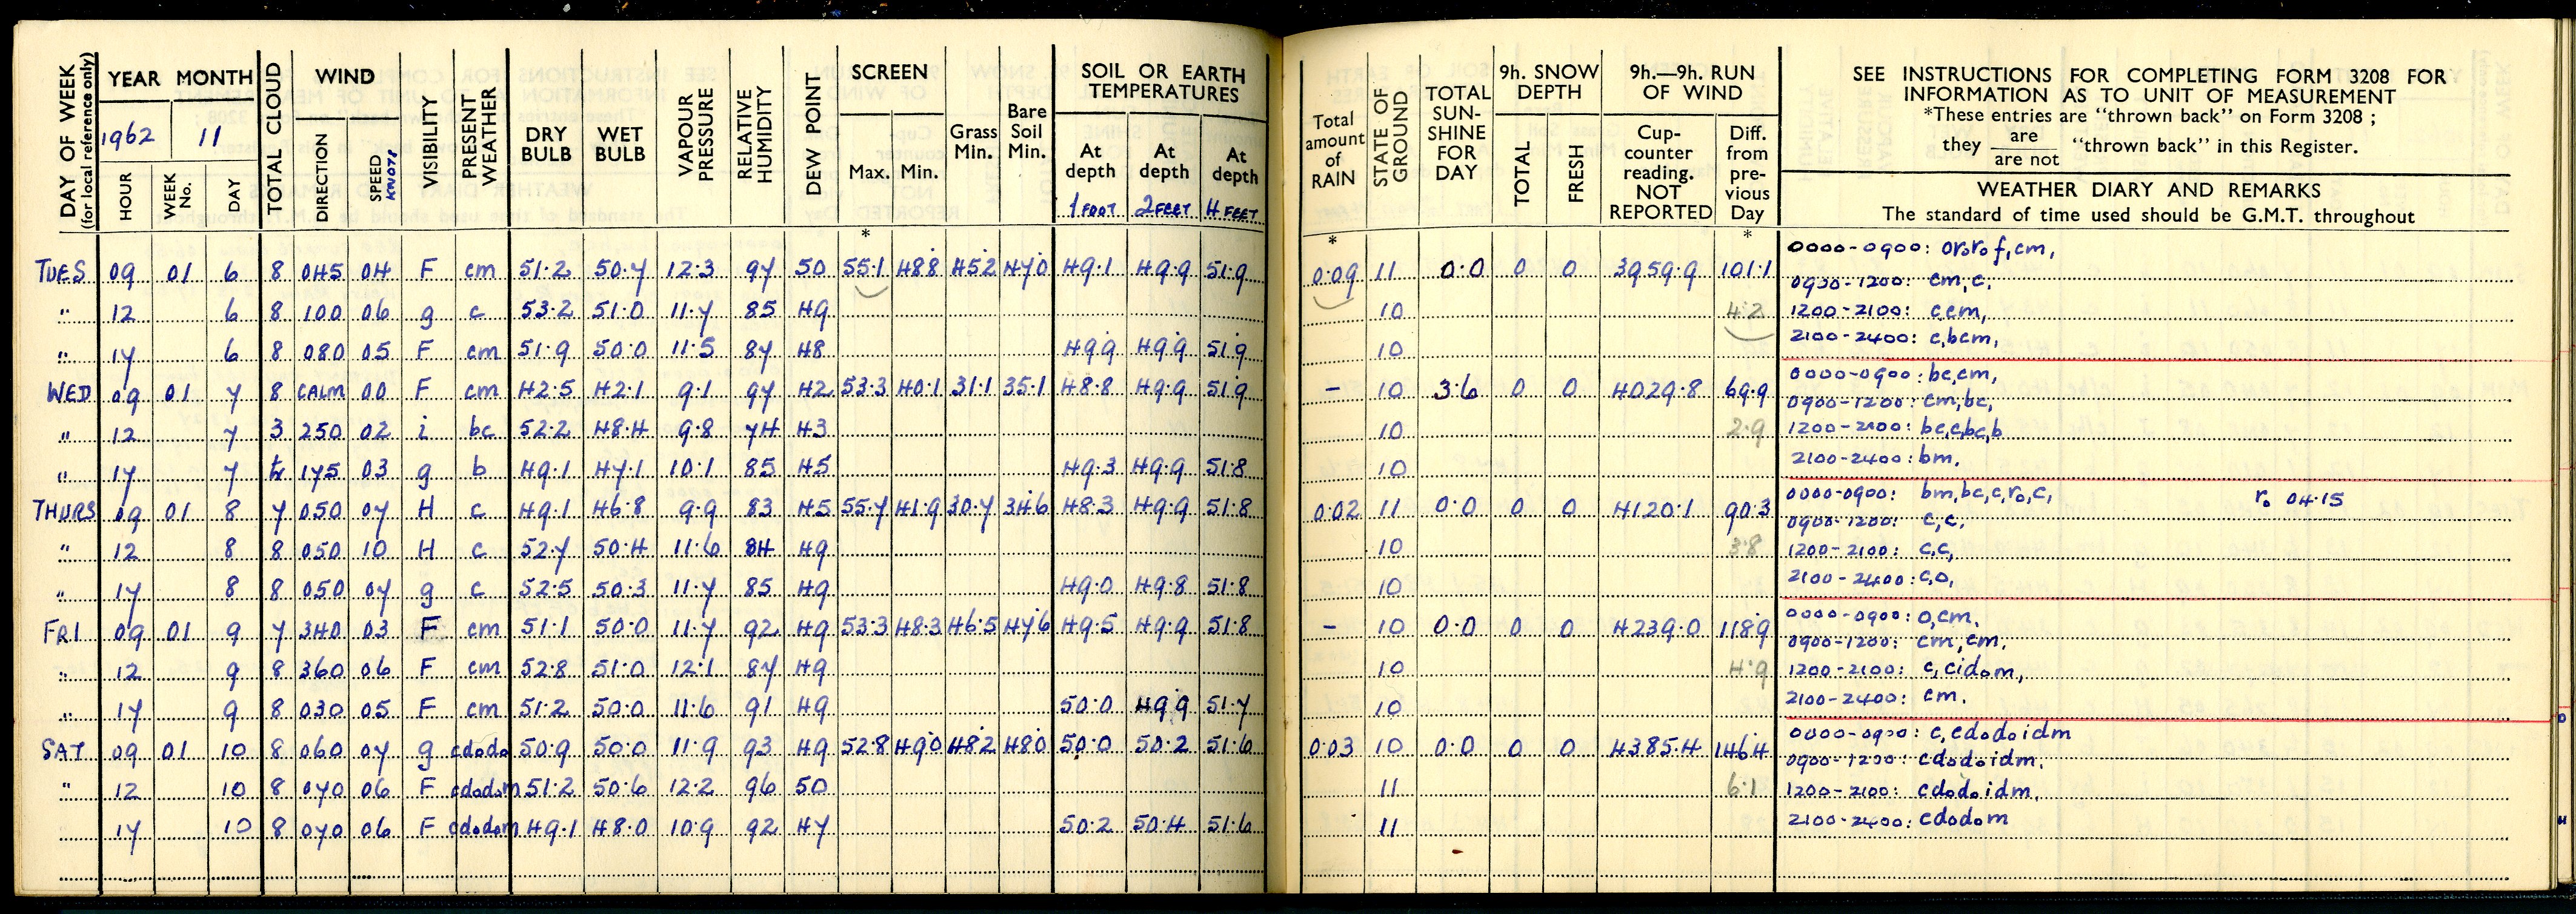 DAY OF WEEK (for local reference only) YEAR MONTH TOTAL CLOUD WIND VISIBILITY PRESENT WEATHER DRY BULB WET BULB VAPOUR PRESSURE RELATIVE HUMIDITY DEW POINT SCREEN Grass Min. Bare Soil Min. SOIL OR EARTH TEMPERATURES
1962 11
HOUR WEEK No. DAY DIRECTION SPEED KNOTS Max. Min. At depth At depth At depth
1 FOOT 2 FEET 4 FEET
*
TUES 09 01 6 8 045 04 F cm 51.2 50.7 12.3 97 50 55.1 48.8 45.2 47.0 49.1 49.9 51.9
" 12 6 8 100 06 g c 53.2 51.0 11.7 85 49
" 17 6 8 080 05 F cm 51.9 50.0 11.5 87 48 49.9 49.9 51.9
WED 09 01 7 8 CALM 00 F cm 42.5 42.1 9.1 97 42 53.3 40.1 31.1 35.1 48.8 49.9 51.9
" 12 7 3 250 02 i bc 52.2 48.4 9.8 74 43
" 17 7 175 03 g b 49.1 47.1 10.1 85 45 49.3 49.9 51.8
THURS 09 01 8 7 050 07 H c 49.1 46.8 9.9 83 45 55.7 41.9 30.7 34.6 48.3 49.9 51.8
" 12 8 8 050 10 H c 52.7 50.4 11.6 84 49
" 17 8 8 050 07 g c 52.5 50.3 11.7 85 49 49.0 49.8 51.8
FRI 09 01 9 7 340 03 F cm 51.1 50.0 11.7 92 49 53.3 48.3 46.5 47.6 49.5 49.9 51.8
" 12 9 8 360 06 F cm 52.8 51.0 12.1 87 49
" 17 9 8 030 05 F cm 51.2 50.0 11.6 91 49 50.0 49.9 51.7
SAT 09 01 10 8 060 07 g cdodo 50.9 50.0 11.9 93 49 52.8 49.0 48.2 48.0 50.0 50.2 51.6
" 12 10 8 070 06 F cdodom 51.2 50.6 12.2 96 50
17 10 8 070 06 F cdodom 49.1 48.0 10.9 92 47 50.2 50.4 51.6
Total amount of RAIN STATE OF GROUND TOTAL SUN-SHINE FOR DAY 9h. SNOW DEPTH 9h.—9h. RUN OF WIND
TOTAL FRESH Cup-counter reading. NOT REPORTED Diff. from pre-vious Day
* *
0.09 11 0.0 0 0 3959.9 101.1
10 4.2
10
- 10 3.6 0 0 4029.8 69.9
10 2.9
10
0.02 11 0.0 0 0 4120.1 90.3
10 3.8
10
- 10 0.0 0 0 4239.0 118.9
10 4.9
10
0.03 10 0.0 0 0 4385.4 146.4
11 6.1
11
SEE INSTRUCTIONS FOR COMPLETING FORM 3208 FOR
INFORMATION AS TO UNIT OF MEASUREMENT
*These entries are "thrown back" on Form 3208 ;
they are / are not "thrown back" in this Register.
WEATHER DIARY AND REMARKS
The standard of time used should be G.M.T. throughout
0000-0900: ororof,cm,
0900-1200: cm,c.
1200-2100: c,cm,
2100-2400: c,bcm,
0000-0900: bc,cm,
0900-1200: cm,bc,
1200-2100: bc,c,bc,b
2100-2400: bm.
0000-0900: bm,bc,c,ro,c, ro 04.15
0900-1200: c,c.
1200-2100: c,c,
2100-2400: c,o,
0000-0900: o,cm.
0900-1200: cm,cm,
1200-2100: c,cidom,
2100-2400: cm.
0000-0900: c,cdodoidm
0900-1200: cdodoidm.
1200-2100: cdodoidm.
2100-2400: cdodom